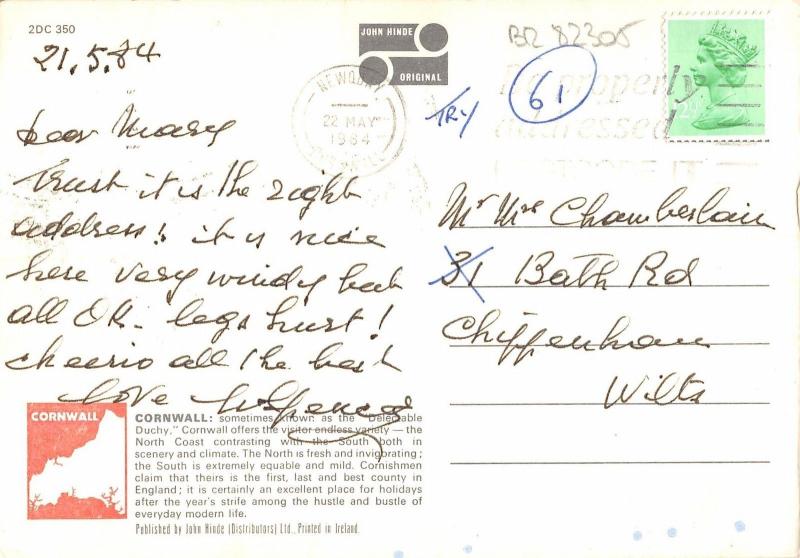 2DC 350
21.5.84
JOHN HINDE
ORIGINAL
BR 82305
NEWQUAY
22 MAY
1984
CORNWALL
TRY
61
properly
addressed
Dear Mary
trust it is the right
address! it is nice
here very windy but
all OK - legs hurt!
cheerio all the best
love
Mr Mrs Chamberlain
31 Bath Rd
Chippenham
Wilts
CORNWALL
CORNWALL: sometimes known as the "Delectable
Duchy," Cornwall offers the visitor endless variety — the
North Coast contrasting with the South both in
scenery and climate. The North is fresh and invigorating;
the South is extremely equable and mild. Cornishmen
claim that theirs is the first, last and best county in
England; it is certainly an excellent place for holidays
after the year's strife among the hustle and bustle of
everyday modern life.
Published by John Hinde (Distributors) Ltd., Printed in Ireland.